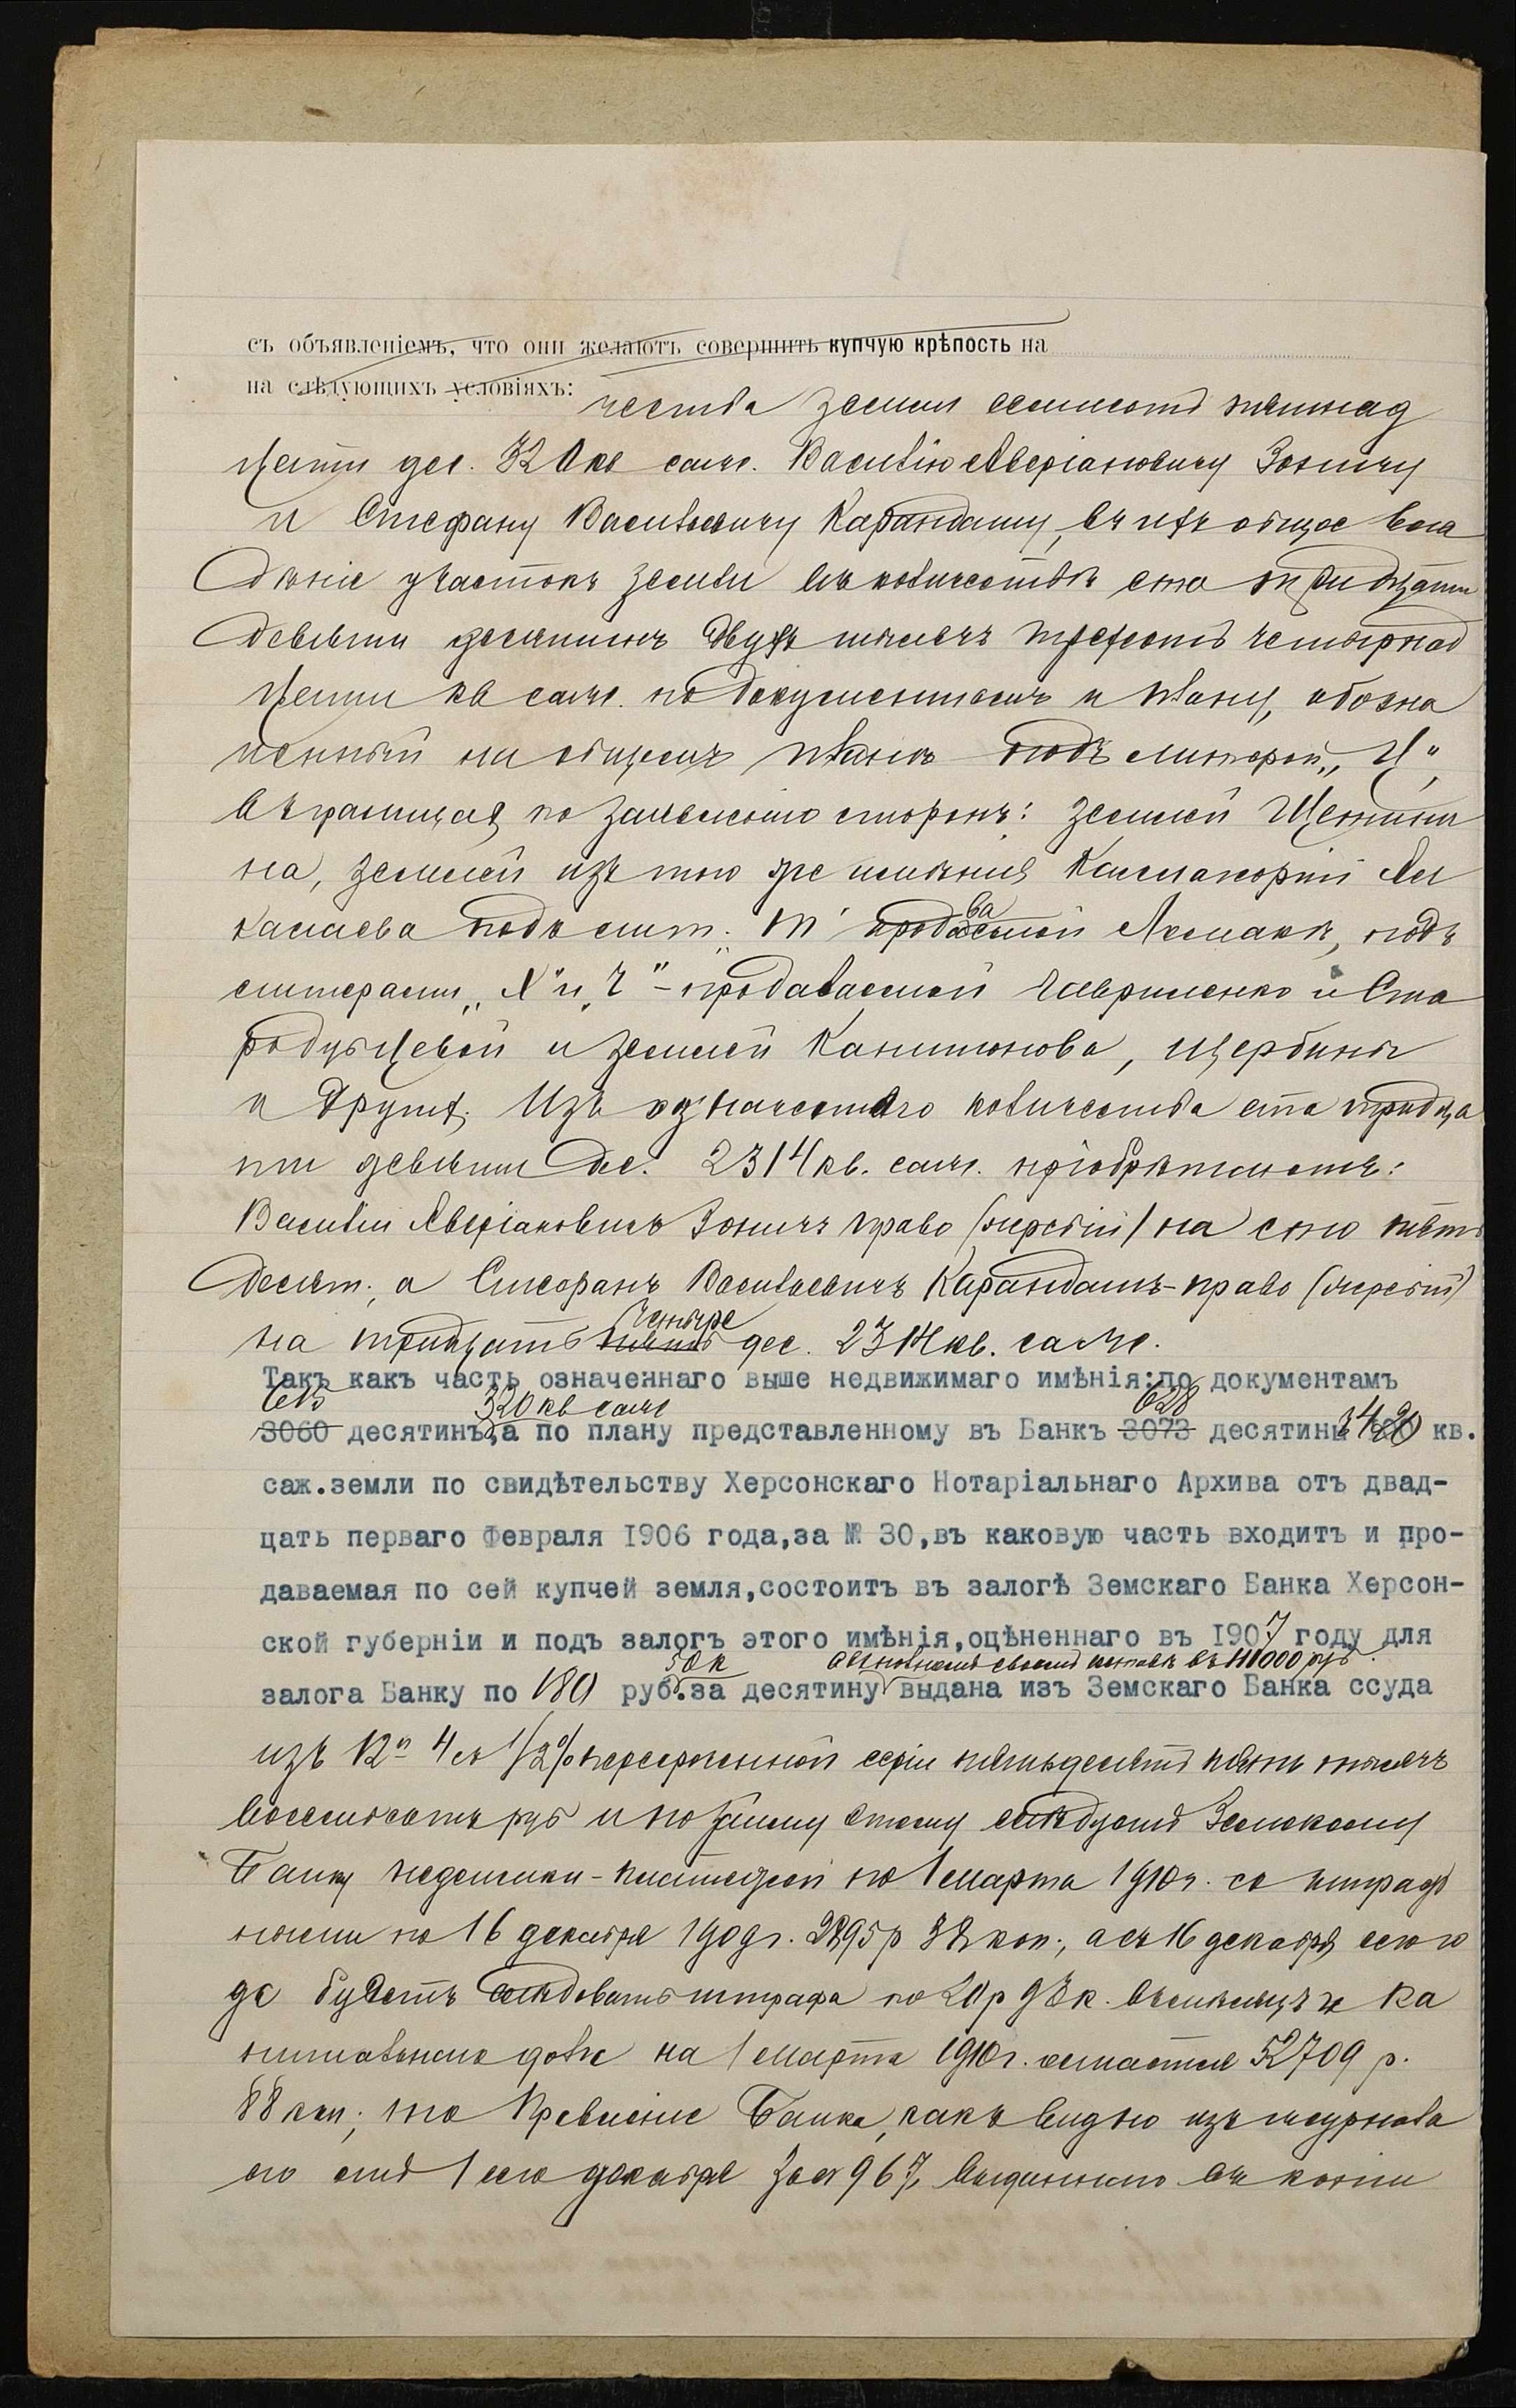 съ объявленіемъ, что они желаютъ совершить купчую крѣпость на
на слѣдующихъ условіяхъ:
чества земли семисотъ пятнад
цати дес. 320 кв саж. Василію Аверіановичу Зоничу
и Стефану Васильевичу Карандашу, въ ихъ общее вла
дѣніе участокъ земли въ количествѣ ста тридцати
девяти десятинъ двухъ тысячъ трехсотъ четырнад
цати кв саж. по документамъ и плану, обозна
ченный на общемъ планѣ подъ литерой „Ц",
въ границахъ по заявленію сторонъ: землей
на, землей изъ того же имѣнія
подъ лит. продаваемой подъ
литерами „Х" и „Ч" - продаваемой Гавриленко и Ста
родубцевой и землей Капитонова, Щербины
и друг. Изъ означеннаго количества ста тридца
ти девяти дес. 2314 кв. саж. пріобрѣтаютъ:
Василій Аверіановичъ Зоничъ право (жребій) на сто пять
десят., а Стефанъ Васильевичъ Карандашъ - право (жребій)
четыре
на тридцать пять дес. 2314 кв. саж.
Такъ какъ часть означеннаго выше недвижимаго имѣнія:по документамъ
320 кв саж 628
3060 десятинъ,а по плану представленному въ Банкъ 3073 десятины кв.
саж.земли по свидѣтельству Херсонскаго Нотаріальнаго Архива отъ двад-
цать перваго Февраля 1906 года,за № 30,въ каковую часть входитъ и про-
даваемая по сей купчей земля,состоитъ въ залогѣ Земскаго Банка Херсон-
ской губерніи и подъ залогъ этого имѣнія,оцѣненнаго въ 1907 году для
50 к въ 111000 руб.
залога Банку по 180 руб.за десятину выдана изъ Земскаго Банка ссуда
изъ 4 съ 1/2% серіи пятьдесятъ пять тысячъ
восемьсотъ руб и по займу этому слѣдуетъ Земскому
Банку недоимки - платежей по 1 Марта 1910 г. со штрафа
ными по 16 декабря 1909 г. коп., а съ 16 декабря сего го
да будетъ слѣдовать штрафа по 20 р к. въ мѣсяцъ и ка
питальнаго долга на 1 Марта 1910 г. остается 52709 р.
88 коп.; то Правленіе Банка, какъ видно изъ журнала
его отъ 1 сего декабря за № 967, въ копіи